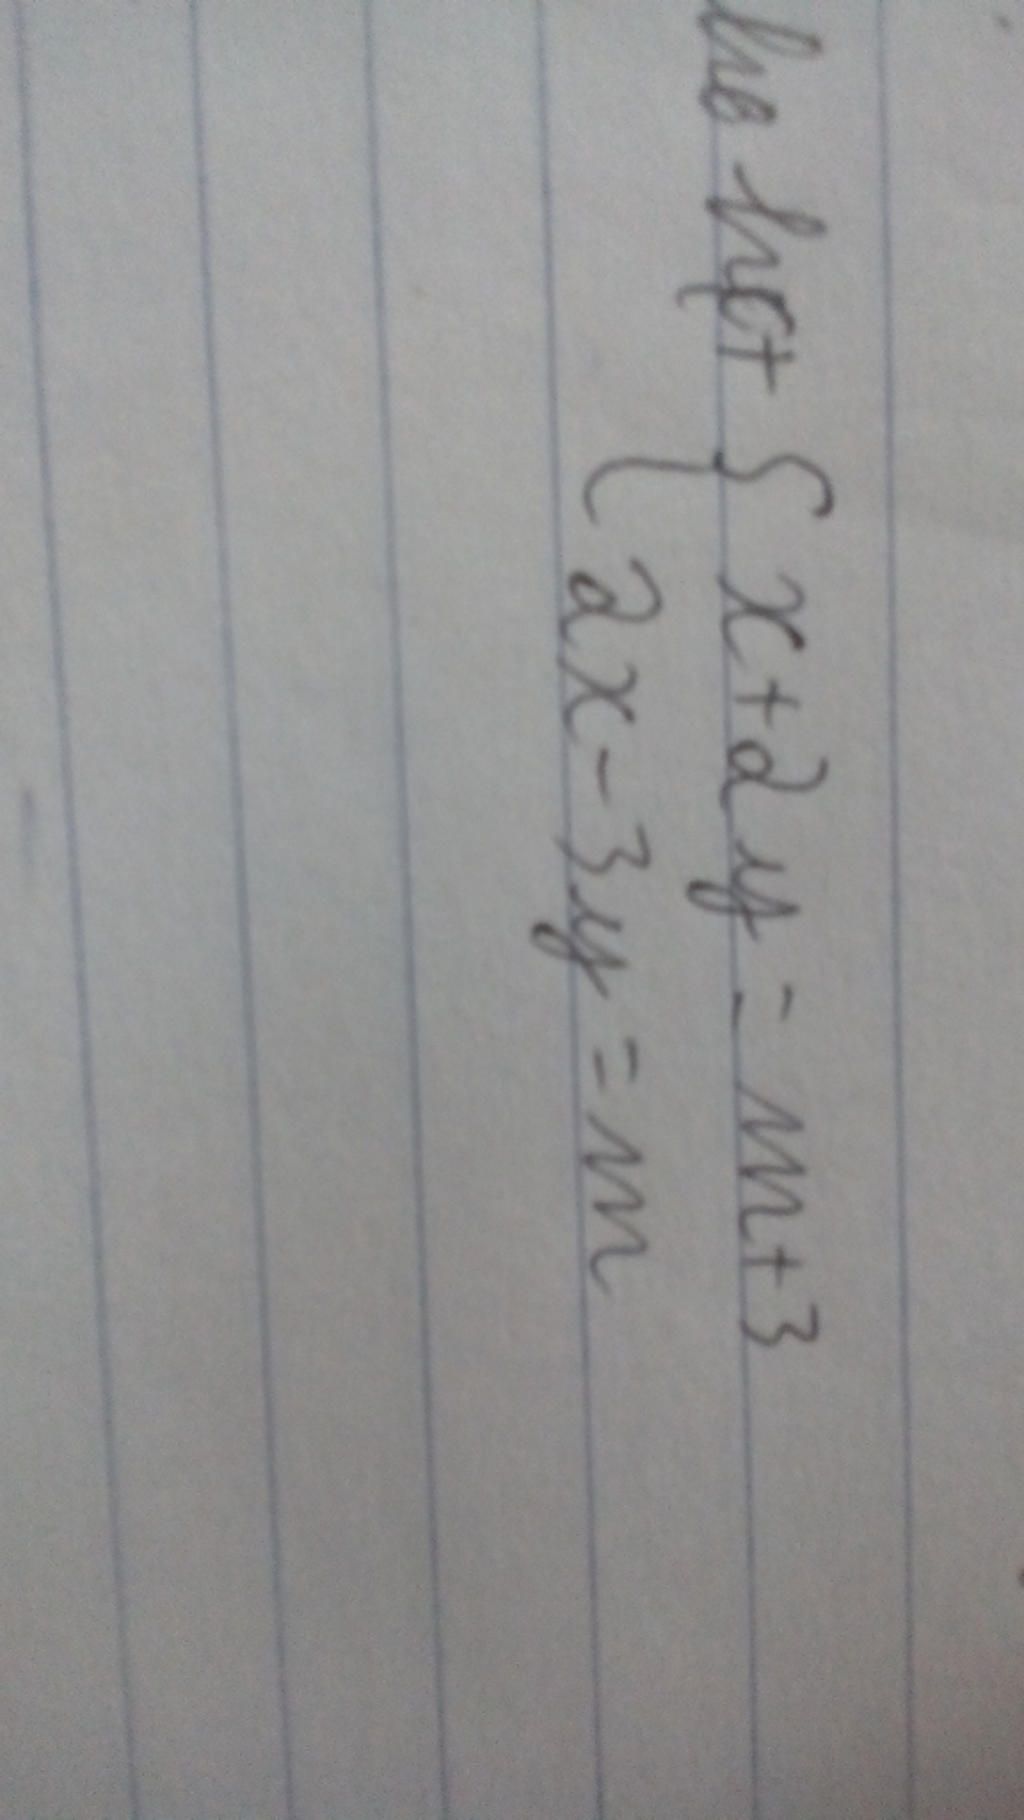 cho hpt { x+2y = m+3
2x-3y = m